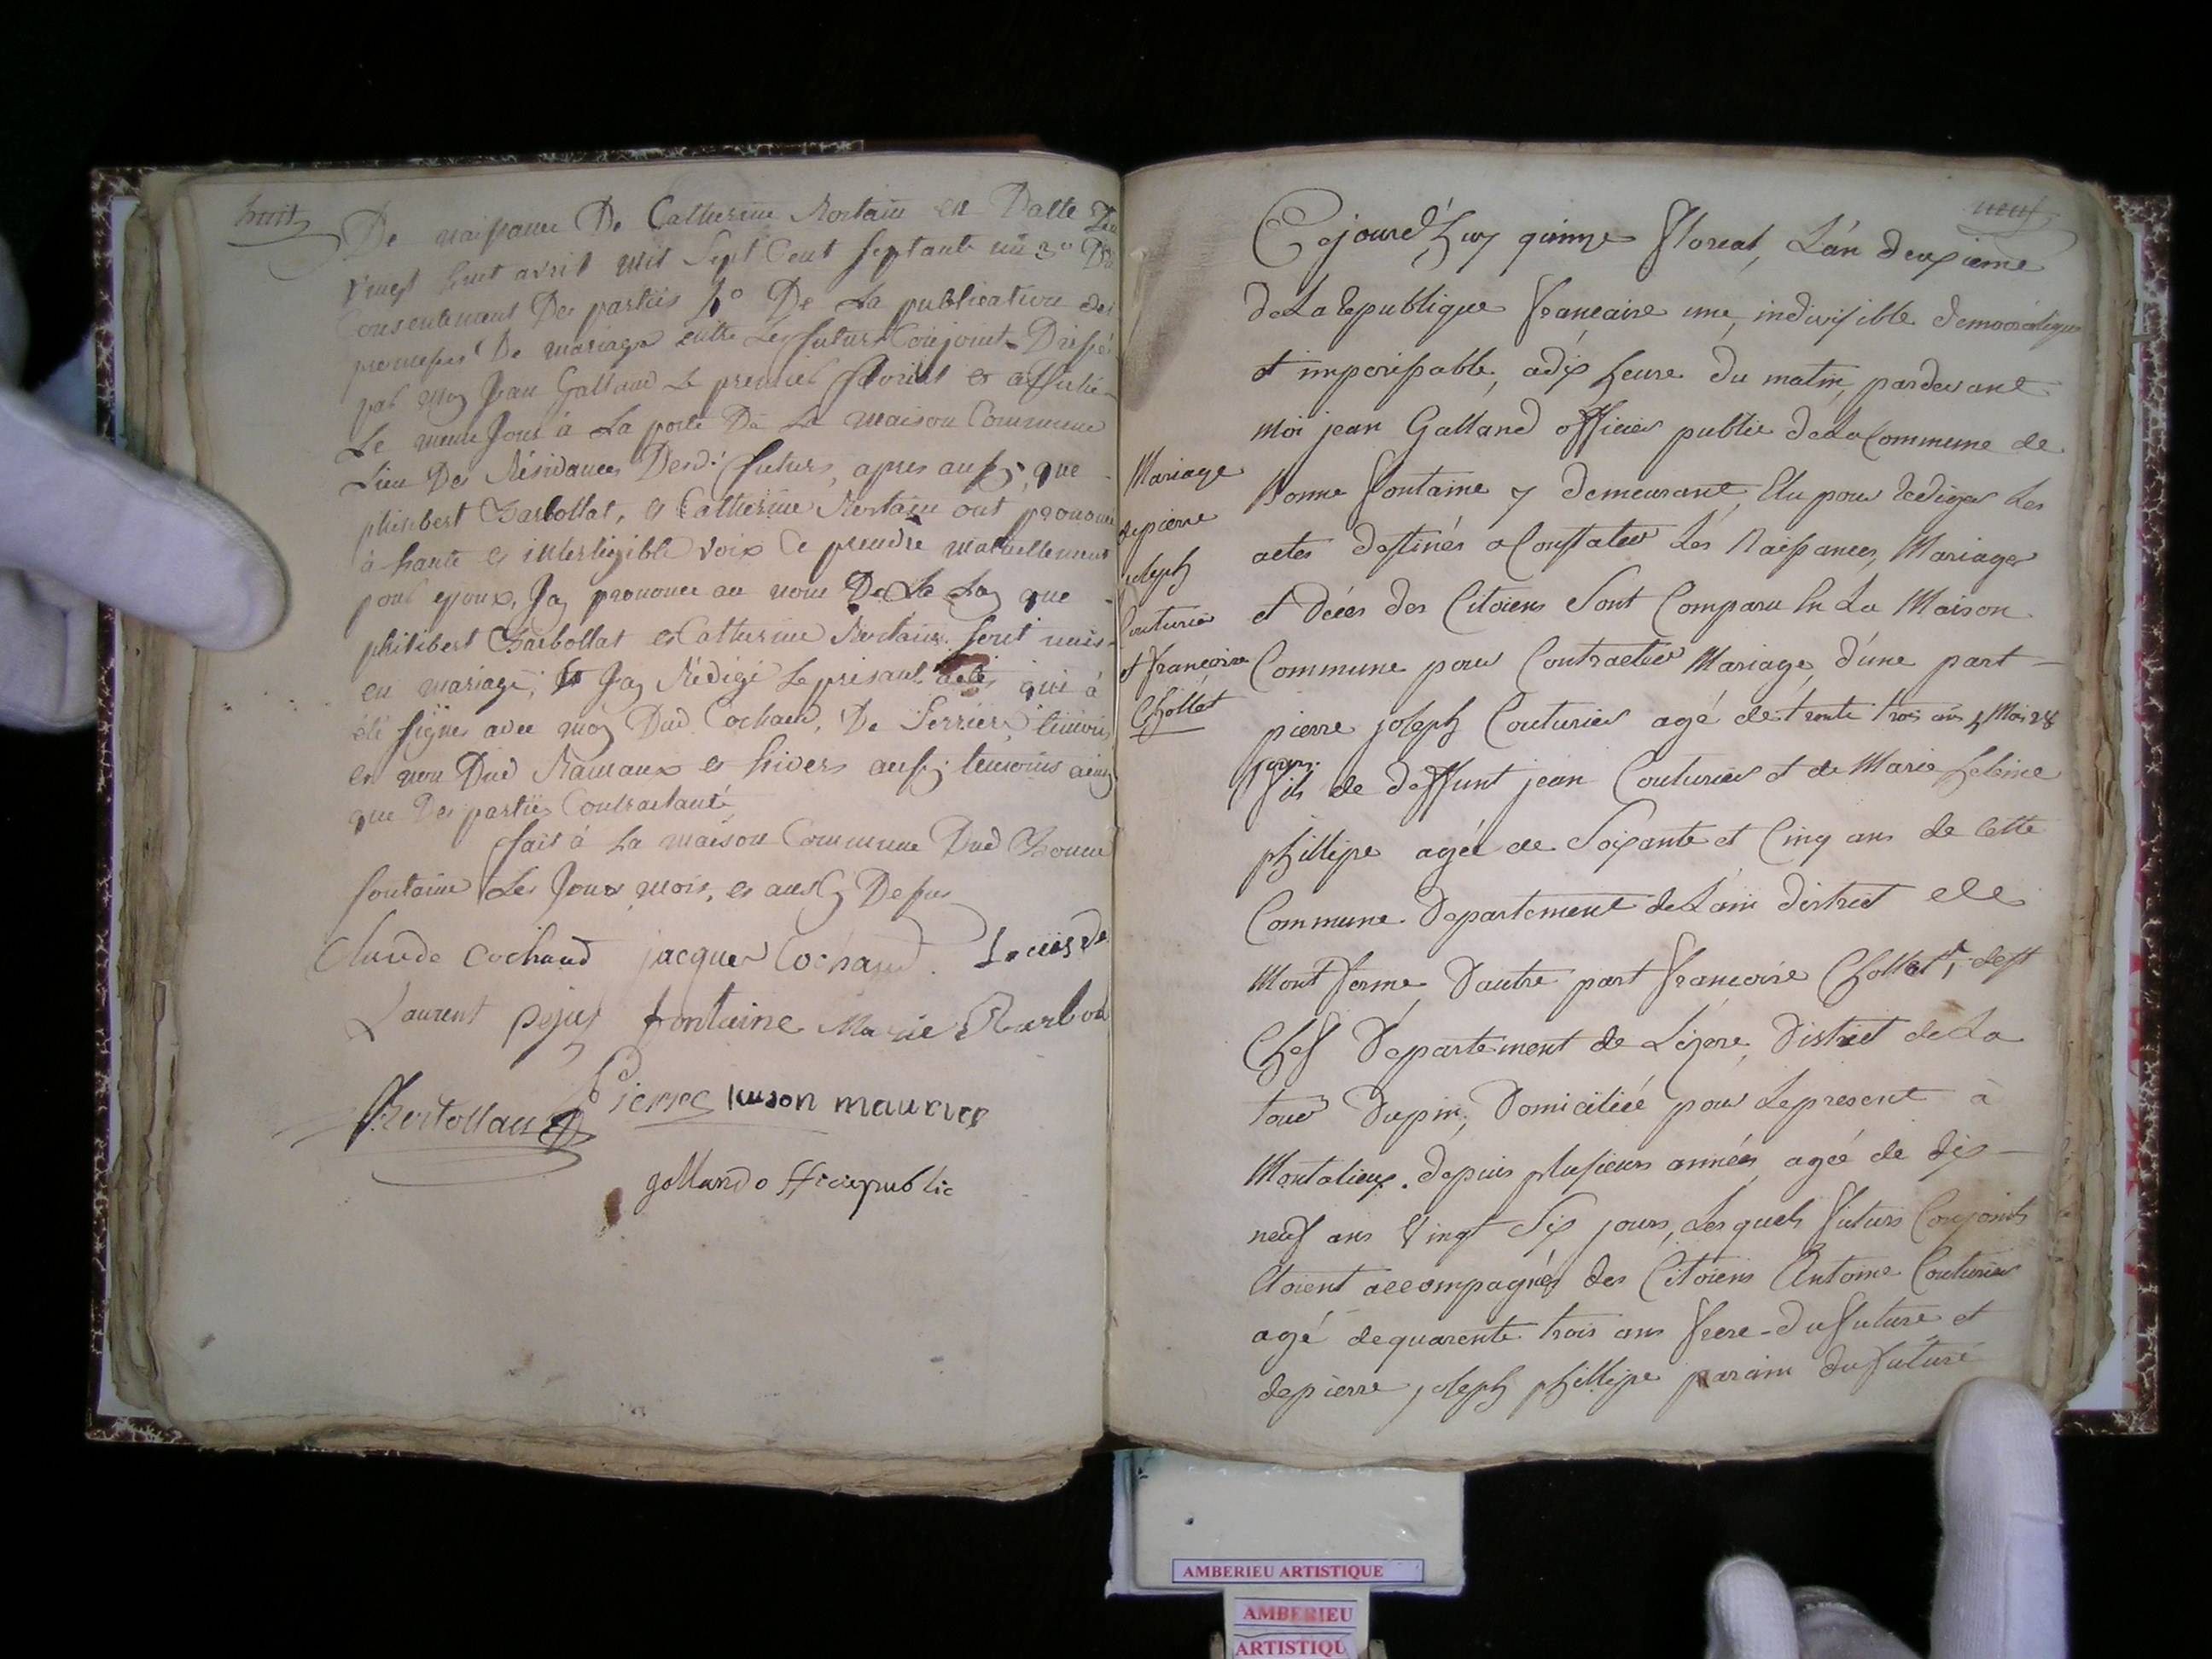 huit
De naissance De Catherine Rostain en Datte Du
vingt huit avril mil Sept Cent Septante un 3º Du
Consentement Des parties 4º De La publication des
promesses De mariage entre Les futurs Conjoints Dressé
par moy Jean Galland Le premier floreal et affiché
Le meme Jour à La porte De La maison Commune
Lieu De Résidances Desd. futurs, apres aussy que
philibert Barbollat, et Catherine Rostain ont prononcé
à haute et interligible voix Ce prendre mutuellement
pour epoux, Jay prononcé au nom De La Loy que
philibert Barbollat et Catherine Rostain sont unis
en mariage, et Jay Rédigé Le présant acte qui à
été signé avec moy Dud Cochaud, De Serrier, témoins
et non Dud Ramaux et hivers aussy témoins ainsy
que Des parties Contractante,
fait à La maison Commune Dud Bonne
fontaine Les Jour, mois, et an Cy Dessus
Claude Cochaud jacques Cochaud. Louis de
Laurent pejus fontaine Marie Barbou
Pierre maurice
galland officie public
neuf
Cejourd'huy quinze floreal, L'an deuxieme
de La republique francaise une, indivisible democratique
et imperissable, a dix heure du matin, pardevant
moi jean Galland officier public de La Commune de
Bonne fontaine y demeurant, Elu pour rediger Les
actes destinés a Constater Les Naissances, Mariages
et décés des Citoiens Sont Comparu En La Maison
Commune pour Contracter Mariage, d'une part
pierre joseph Couturier agé de trente trois ans 4 Mois 28
jours.
fils de deffunt jean Couturier et de Marie helene
phillipe agée de Soixante et Cinq ans de Cette
Commune Departement de L'ain district de
Mont ferme, D'autre part francoise Chollat, de st
Chef Departement de Lizere, District de La
tour Dupin, Domiciliée pour Le present à
Montalieux. depuis plusieurs années, agée de dix
neuf ans Vingt Six jours, Les quels futurs Conjoints
Etoient accompagnés des Citoiens Antoine Couturier
agé de quarente trois ans frere du future et
de pierre joseph phillipe parain du future
Mariage
de pierre
joseph
Couturier
et francoise
Chollat
AMBERIEU ARTISTIQUE
AMBERIEU
ARTISTIQU